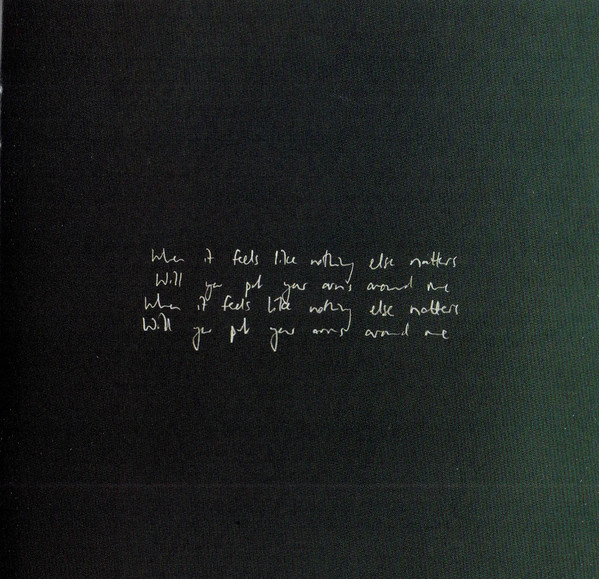 When it feels like nothing else matters
Will you put your arms around me
When it feels like nothing else matters
Will you put your arms around me